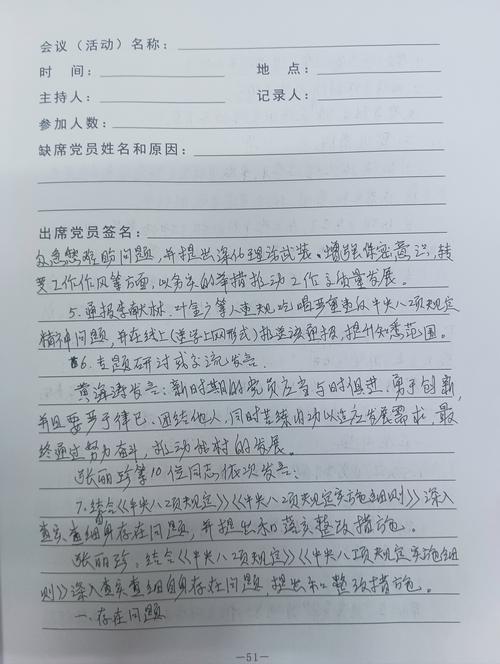 会议（活动）名称：
时 间： 地 点：
主持人： 记录人：
参加人数：
缺席党员姓名和原因：
出席党员签名：
众急愁难盼问题，并提出深化理论武装、增强保密意识，转
变工作作风等方面，以务实的举措推动工作高质量发展。
5.通报李献林、叶金广等人违规吃喝严重违反中央八项规定
精神问题，并在线上(连学上网形式)
6.专题研讨或交流发言。
黄海涛发言：新时期的党员应当与时俱进，勇于创新，
并且要严于律己、团结他人，同时苦练内功以适应发展需求，最
终通过努力奋斗，推动的发展。
张丽珍等10位同志依次发言：
7.结合《中央八项规定》《中央八项规定实施细则》深入
查实查细自身存在问题，并提出和落实整改措施。
张丽珍：结合《中央八项规定》《中央八项规定实施细
则》深入查实查细自身存在问题 提出和整改措施。
一、存在问题
—51—